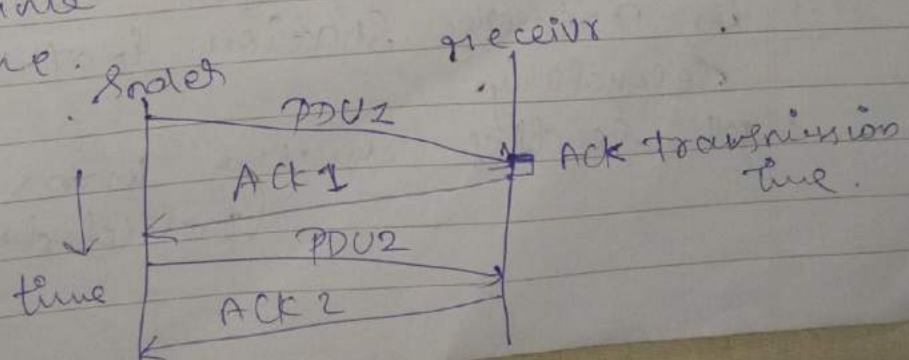 me.
Snder
receivr
PDU1
ACK 1
ACK transmission
time.
PDU2
time
ACK 2